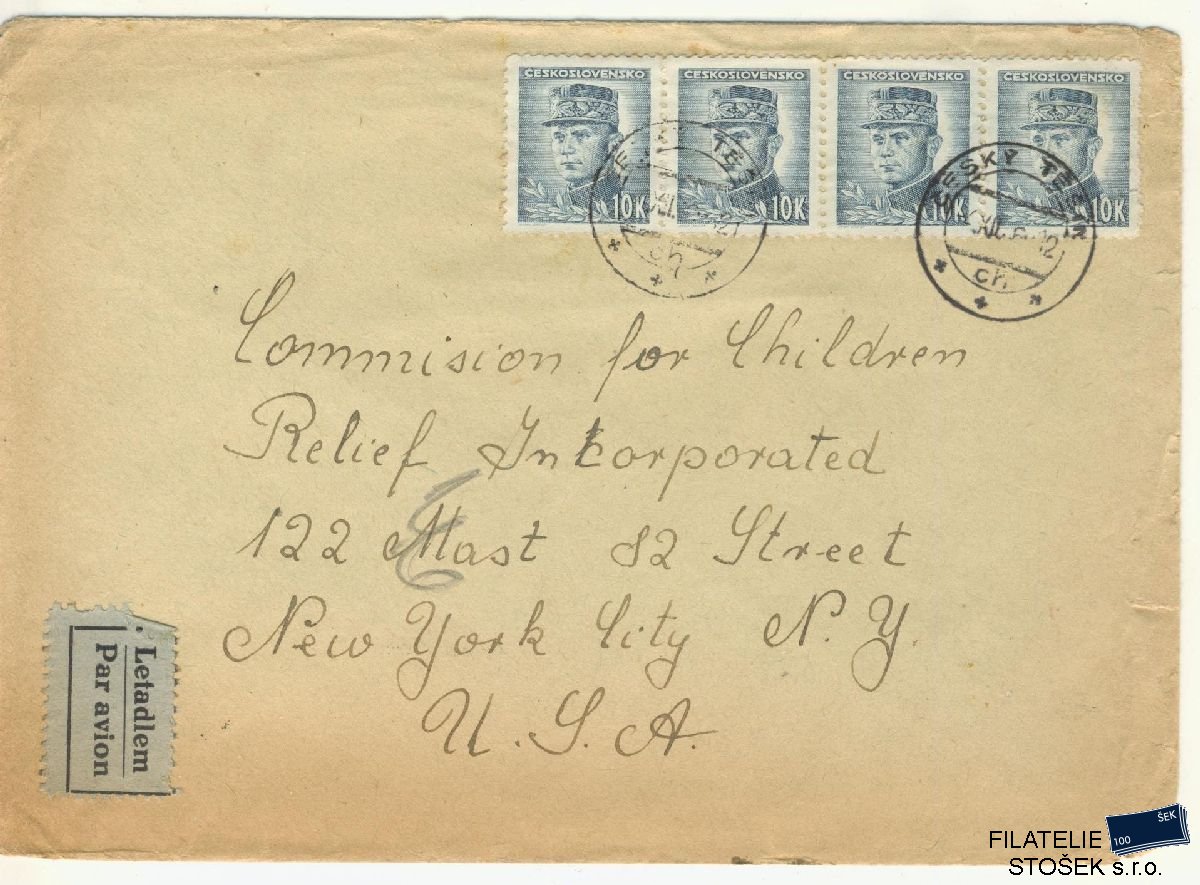 ČESKOSLOVENSKO ČESKOSLOVENSKO ČESKOSLOVENSKO ČESKOSLOVENSKO
10K 10K 10K 10K
ČESKÝ TĚŠÍN
ch
ČESKÝ TĚŠÍN
ch
Commision for Children
Relief Incorporated
122 East 82 Street
New York City N.Y.
U.S.A.
Letadlem
Par avion
FILATELIE
STOŠEK s.r.o.
100
ŠEK